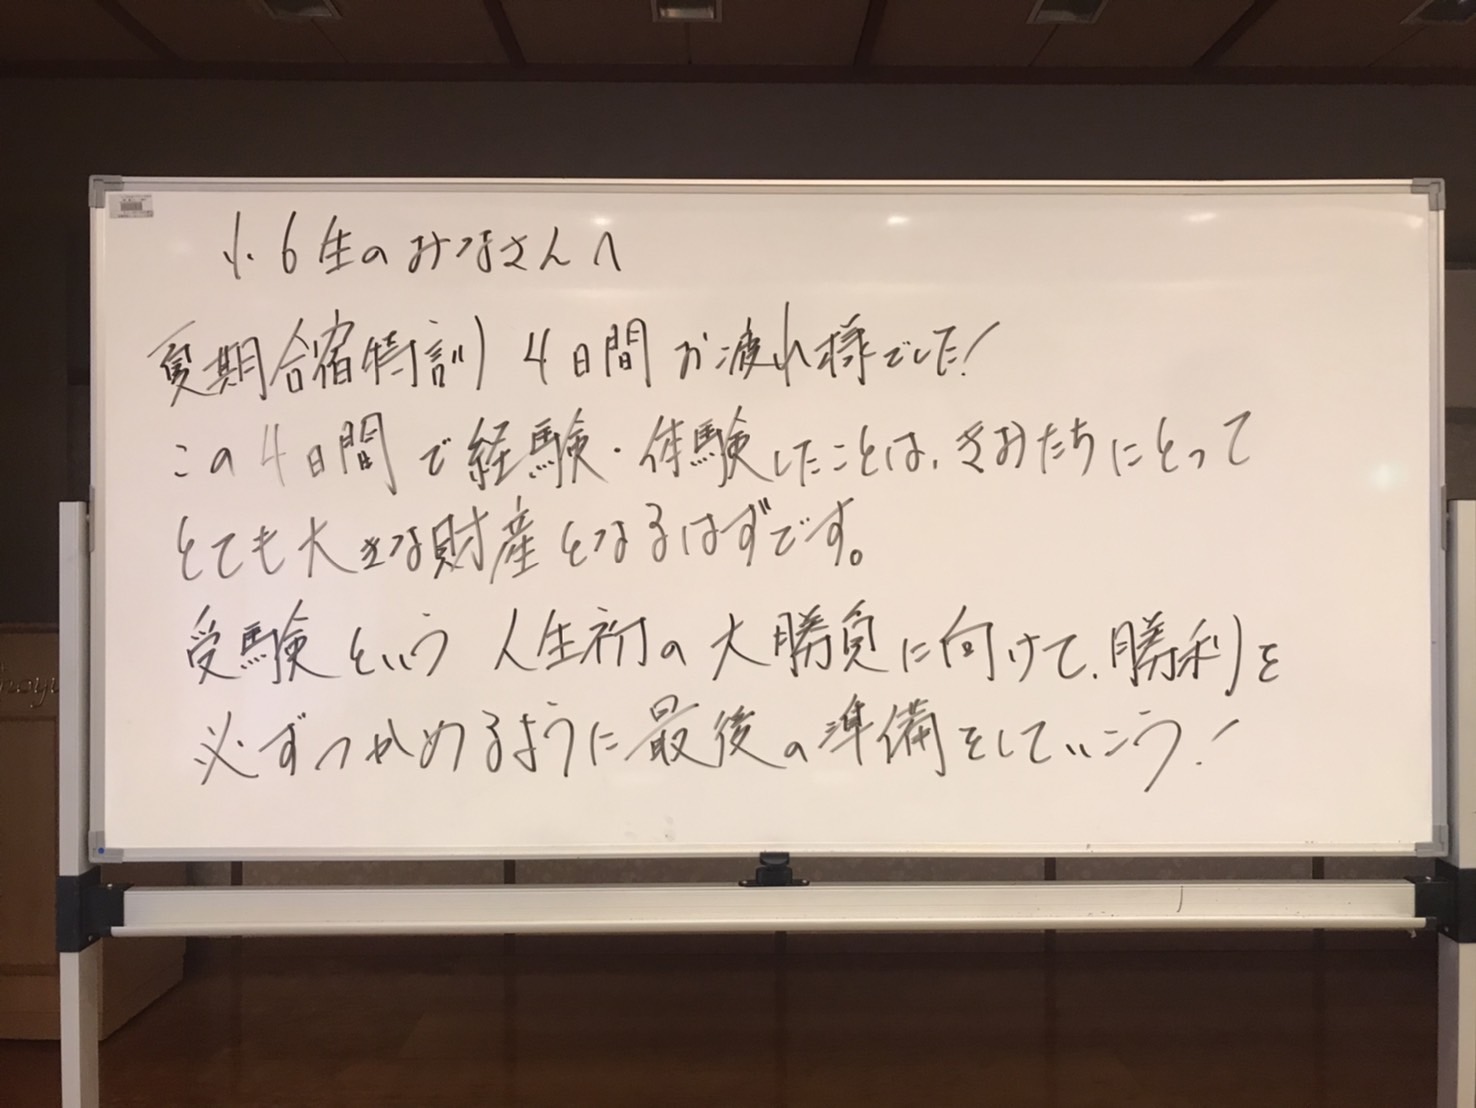 小6生のみなさんへ
夏期合宿特訓 4日間お疲れ様でした!
この4日間で経験・体験したことは、きみたちにとって
とても大きな財産となるはずです。
受験という人生初の大勝負に向けて、勝利を
必ずつかめるように最後の準備をしていこう!